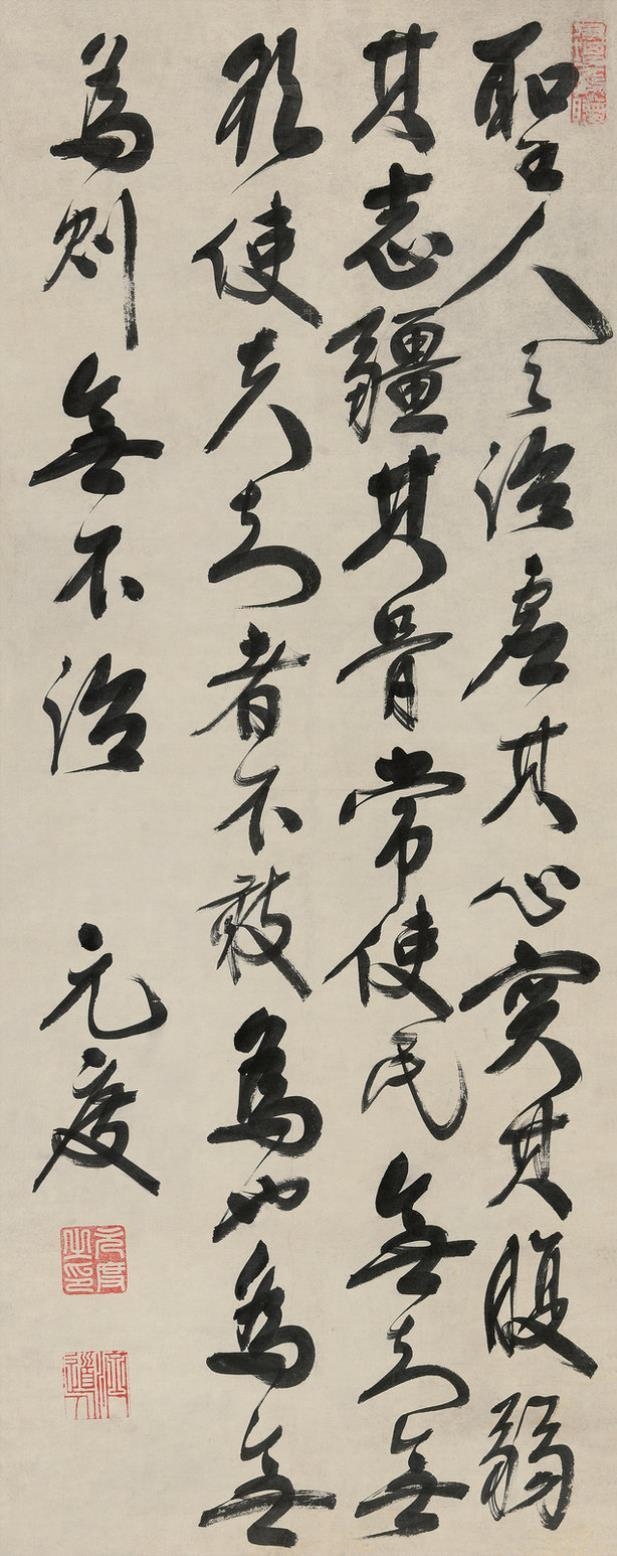 聖人之治虛其心實其腹弱
其志彊其骨常使民無知無
欲使夫知者不敢為也為無
為則無不治
元度
元度之印